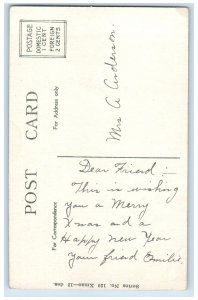 POSTAGE
DOMESTIC
1 CENT
FOREIGN
2 CENTS
POST CARD
For Address only
Mrs A Anderson.
For Correspondence
Dear Friend :-
This is wishing
you a Merry
Xmas and a
Happy New Year
Your friend Emilie
Series No. 120 Xmas—12 des.